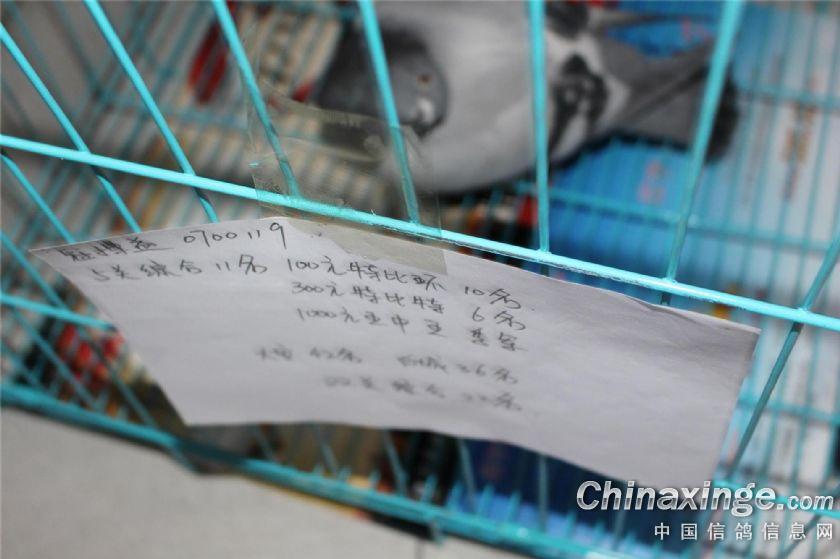 0700119
5关综合 11名 100元特比环 10名
300元特比特 6名
1000元王中王 季军
42名 26名
四关综合 22名
Chinaxinge.com
中国信鸽信息网